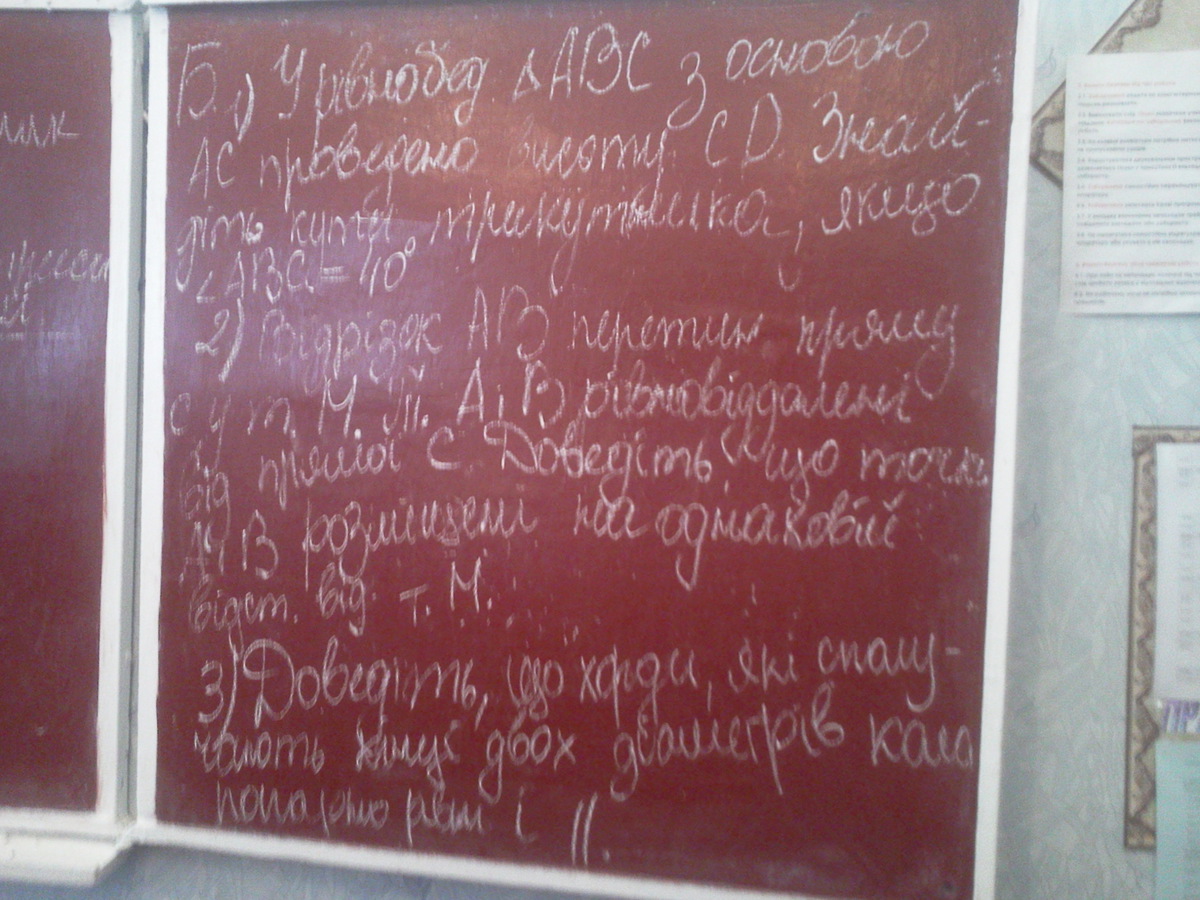 лик
Б. 1) У рівнобед ΔABC з основою
AC проведено висоту CD. Знай-
діть кути трикутника, якщо
∠ABC = 40°
2) Відрізок AB перетин пряму
с у т. М. Т. A і B рівновіддалені
від прямої с. Доведіть що точки
A і B розміщені на однаковій
відст. від т. М.
3) Доведіть, що хорди, які сполу-
чають кінці двох діаметрів кола
попарно рівні і ||.